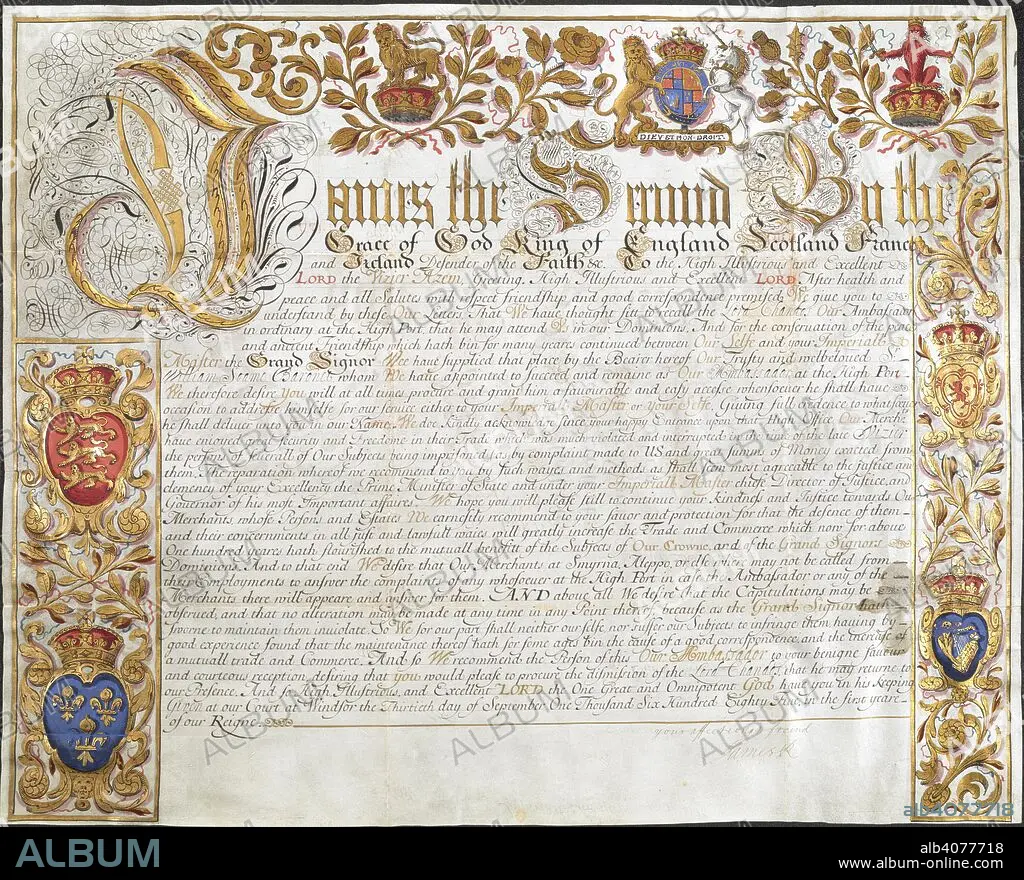 DIEV ET MON DROIT
James the Second By the
Grace of God King of England Scotland France
and Ireland Defender of the Faith &c. To the High Illustrious and Excellent
LORD the Vizir Azem Greeting. High Illustrious and Excellent LORD. After health and
peace and all Salutes with respect friendship and good correspondence premised, We give you to
understand by these Our Letters That We have thought fitt to recall the Lord Chandos Our Ambassador
in ordinary at the High Port that he may attend Us in our Dominions. And for the conservation of the good
and ancient Friendship which hath bin for many yeares continued between Our Selfe and your Imperiall
Master the Grand Signor We have supplied that place by the Bearer hereof Our Trusty and welbeloved Sr.
William Soame Baronet whom We have appointed to succeed and remaine as Our Ambassador at the High Port.
We therefore desire you will at all times procure and grant him a favorable and easy accesse whensoever he shall have
occasion to addresse himselfe for our service either to your Imperial Master or your Selfe, Giving full credence to whatsoever
he shall deliver to you in our Name. We doe kindly acknowledge since your happy Entrance upon that High Office Our Merchts
have enioyed that Security and Freedome in their Trade which was much violated and interrupted in the time of the late Vizir
the persons of severall of Our Subjects being imprisoned as by complaint made to US and great summs of Money exacted from
them, a reparation whereof we recommend to you by such wayes and methods as shall seem most agreable to the justice and
clemency of your Excellency the Prime Minister of State and under your Imperiall Master chiefe Director of Justice, and
Governor of his most Important affaires. We hope you will please still to continue your Kindness and Justice towards Our
Merchants, whose Persons and Estates We earnestly recommend to your favor and protection for that the defence of them
and their concernments in all just and lawfull waies will greatly increase the Trade and Commerce which now for above
One hundred yeares hath flourished to the mutuall benefit of the Subjects of Our Crowne, and of the Grand Signors
Domenions. And to that end We desire that Our Merchants at Smyrna, Aleppo, or else where may not be called from
their Employments to answer the complaints of any whosoever at the High Port in case the Ambassador or any of the
Merchants there will appeare and answer for them. AND above all We desire that the Capitulations may be
observed, and that no alteration may be made at any time in any Point thereof, because as the Grand Signor hath
sworne to maintain them inviolate. So We for our part shall neither our selfe nor suffer our Subjects to infringe them having by
good experience found that the maintenance thereof hath for some ages bin the cause of a good correspondence, and the increase of
a mutuall trade and Commerce. And so We recommend the Person of this Our Ambassador to your benigne favour
and courteous reception desiring that you would please to procure the dismission of the Lord Chandos that he may returne to
our Presence. And so High, Illustrious, and Excellent LORD the One Great and Omnipotent God have you in his keeping
Given at our Court at Windsor the Thirtieth day of September One Thousand Six Hundred Eighty Five, in the first yeare
of our Reigne
your affectionate friend
James R
ALBUM
alb4077718
ALBUM
alb4077718
www.album-online.com